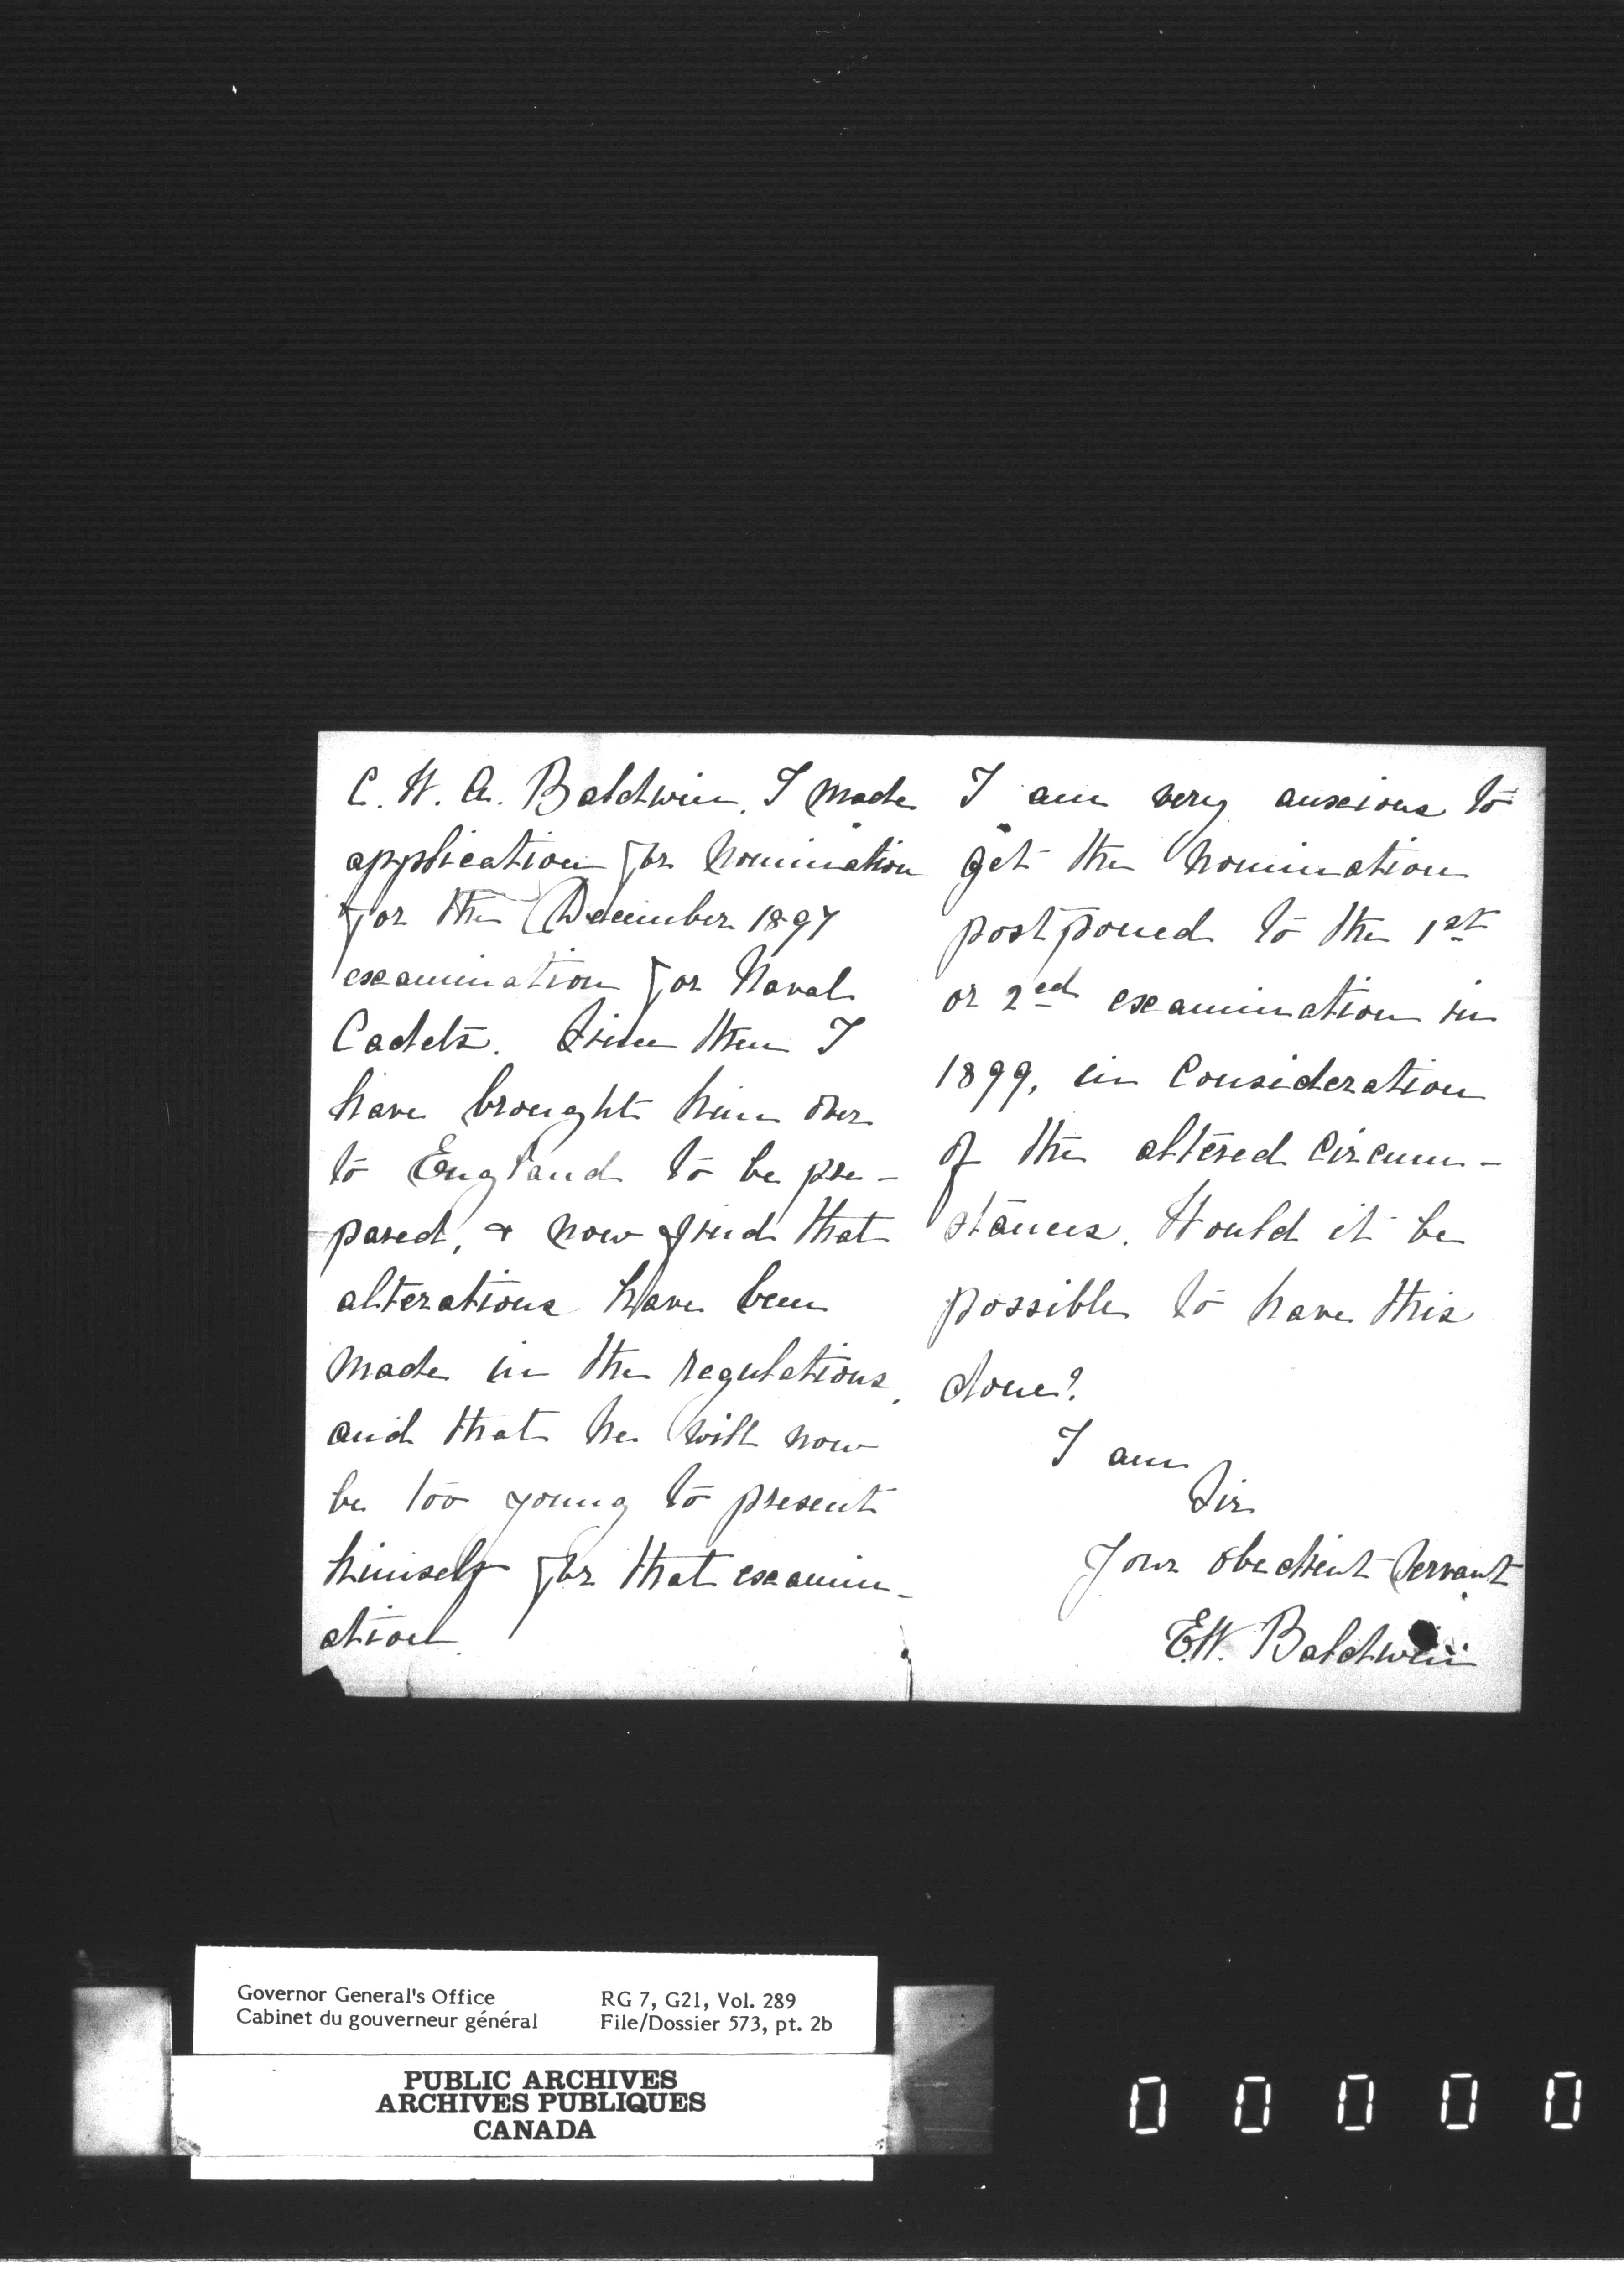 C. W. A. Baldwin. I made
application for nomination
for the December 1897
examination for Naval
Cadets. Since then I
have brought him over
to England to be pre-
pared, & now find that
alterations have been
made in the regulations,
and that he will now
be too young to present
himself for that examin-
ation
I am very anxious to
get the nomination
postponed to the 1st
or 2ed examination in
1899, in consideration
of the altered circum-
stances. Would it be
possible to have this
done?
I am
Sir
Your obedient Servant
E.W. Baldwin
Governor General's Office
Cabinet du gouverneur général
RG 7, G21, Vol. 289
File/Dossier 573, pt. 2b
PUBLIC ARCHIVES
ARCHIVES PUBLIQUES
CANADA
0 0 0 0 0